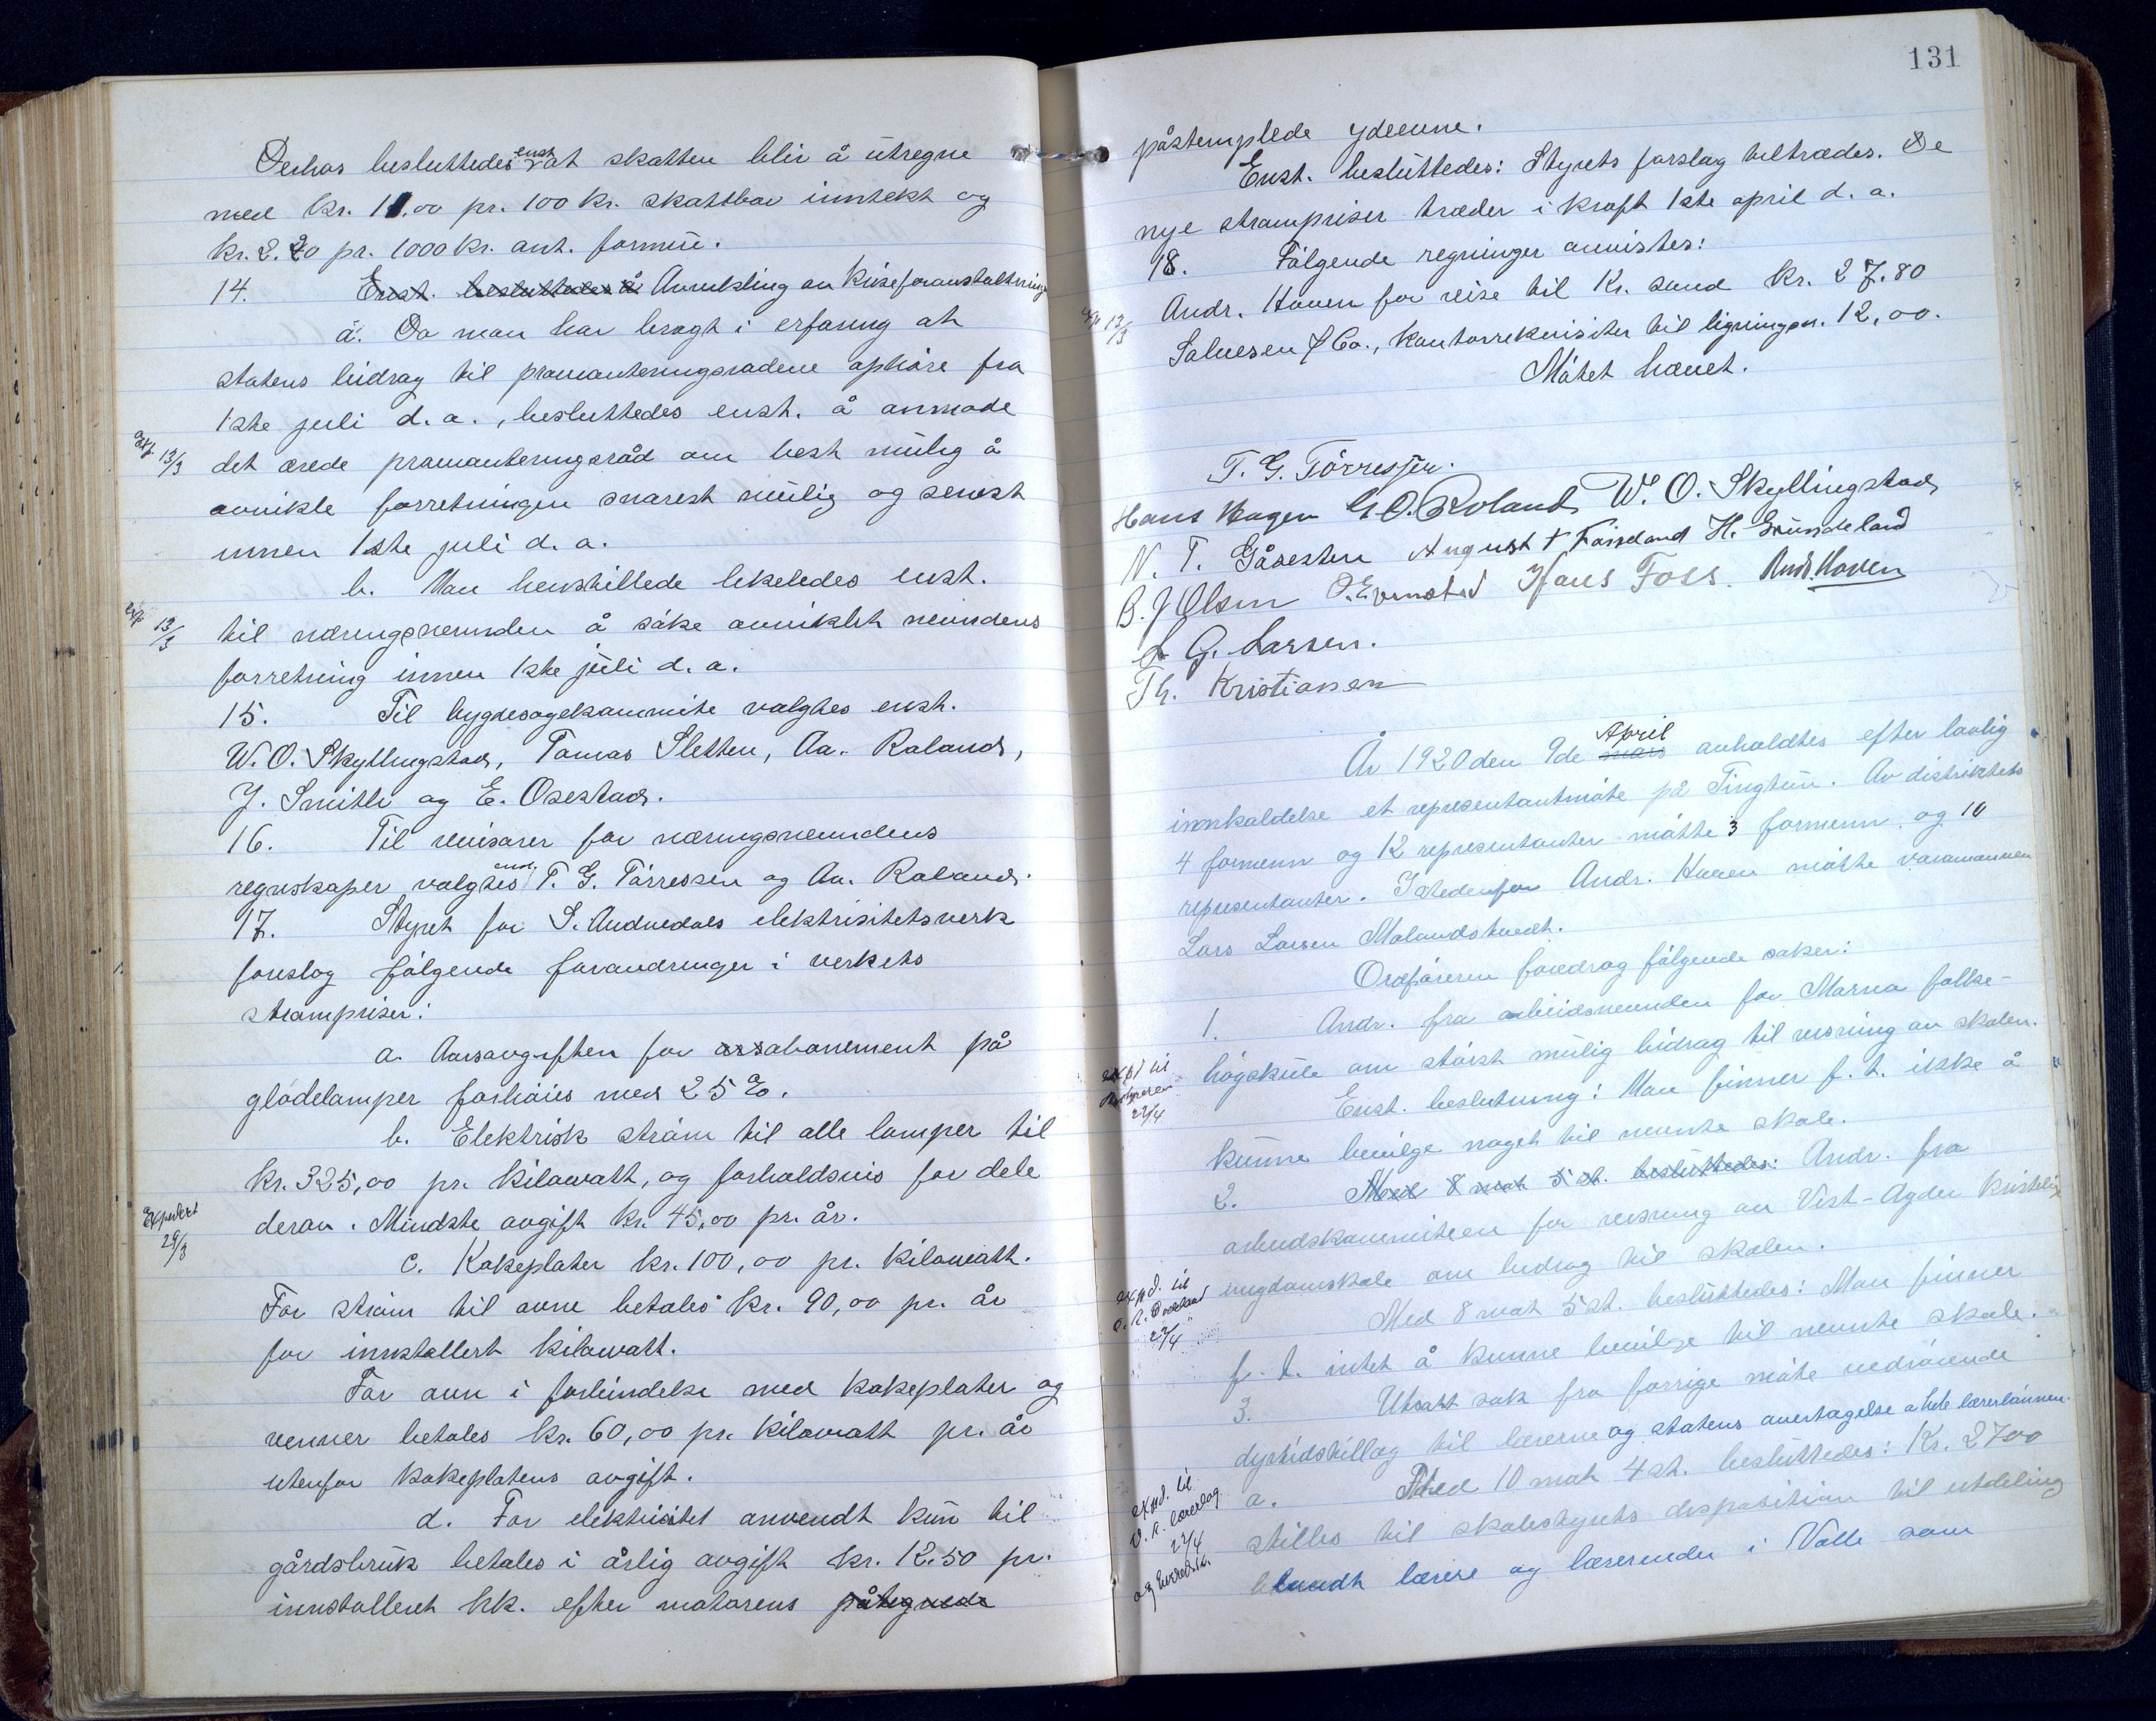 Derhos besluttedes enst. at skatten blir å utregne
med kr. 11.00 pr. 100 kr. skattbar inntekt og
kr. 2.20 pr. 1000 kr. ant. formue.
14. Enst. besluttedes å Avvikling av kriseforanstaltning
a. Da man har bragt i erfaring at
statens bidrag til proviantering­sradene ophøre fra
1ste juli d. a., besluttedes enst. å anmode
Exp. 13/3
det ærede provianteringsråd om best mulig å
avvikle forretningen snarest mulig og senest
innen 1ste juli d. a.
b. Man henstillede likeledes enst.
exp 13/3
til næringsnemnden å søke avviklet nemndens
forretning innen 1ste juli d. a.
15. Til bygdesogekommite valgtes enst.
W. O. Skyllingstad, Tomas Sletten, Aa. Roland,
J. Smith og E. Osestad.
16. Til revisorer for næringsnemndens
regnskaper valgtes enst. T. G. Tørressen og Aa. Roland.
17. Styret for S. Audnedals elektrisitetsverk
foreslog følgende forandringer i verkets
strømpriser:
a. Aarsavgiften for årsabonnement på
glødelamper forhøies med 25 %.
b. Elektrisk strøm til alle lamper til
kr. 325,00 pr. kilowatt, og forholdsvis for dele
Expedert 29/3
derav. Mindste avgift kr. 45,00 pr. år.
c. Kokeplater kr. 100,00 pr. kilowatt.
For strøm til ovne betales kr. 90,00 pr. år
for innstallert kilowatt.
For ovn i forbindelse med kokeplater og
venner betales kr. 60,00 pr. kilowatt pr. år
utenfor kokeplatens avgift.
d. For elektrisitet anvendt kun til
gårdsbruk betales i årlig avgift kr. 12.50 pr.
innstalleret hk. efter motorens påtegnede
131
påstemplede ydeevne.
Enst. besluttedes: Styrets forslag tiltrædes. De
nye strømpriser træder i kraft 1ste april d. a.
18. Følgende regninger anvistes:
exp 13/3
Andr. Hoven for reise til Kr. sand kr. 27.80
Salvesen & Co., kontorrekvisiter til ligningen. 12,00.
Møtet hævet.
T. G. Tørressen.
Hans Hagen G. O. Roland W. O. Skyllingstad
N. T. Gåsesten August T Føreland H. Grundeland
B. J Olsen O. Evenstad Hans Foss. Andr. Hoven
L G. Larsen.
Th. Kristiansen
År 1920 den 9de mars April avholdtes efter lovlig
innkaldelse et representantmøte på Tingtun. Av distriktets
4 formenn og 12 representanter møtte 3 formenn og 10
representanter. Istedenfor Andr. Hoven møtte varamannen
Lars Larsen Molandstvedt.
Ordføreren foredrog følgende saker:
1. Andr. fra arbeidsnemnden for Marna folke-
høgskule om størst mulig bidrag til reisning av skolen.
expd til
Bestyreren
22/4
Enst. beslutning: Man finner f. t. ikke å
kunne bevilge noget til nevnte skole.
2. Med 8 mot 5 st. besluttedes: Andr. fra
arbeidskommiteen for reisning av Vest-Agder kristelige
ungdomskole om bidrag til skolen.
expd. til
22/4
Med 8 mot 5 st. besluttedes: Man finner
f. t. intet å kunne bevilge til nevnte skole.
3. Utsatt sak fra forrige møte vedrørende
dyrtidstillæg til lærerne og statens overtagelse a hele lærerlønnen.
a. Med 10 mot 4 st. besluttedes: Kr. 2700
expd. til
V. A. lærerlag
22/4
stilles til skolestyrets disposition til utdeling
blandt lærere og lærerinder i Valle som